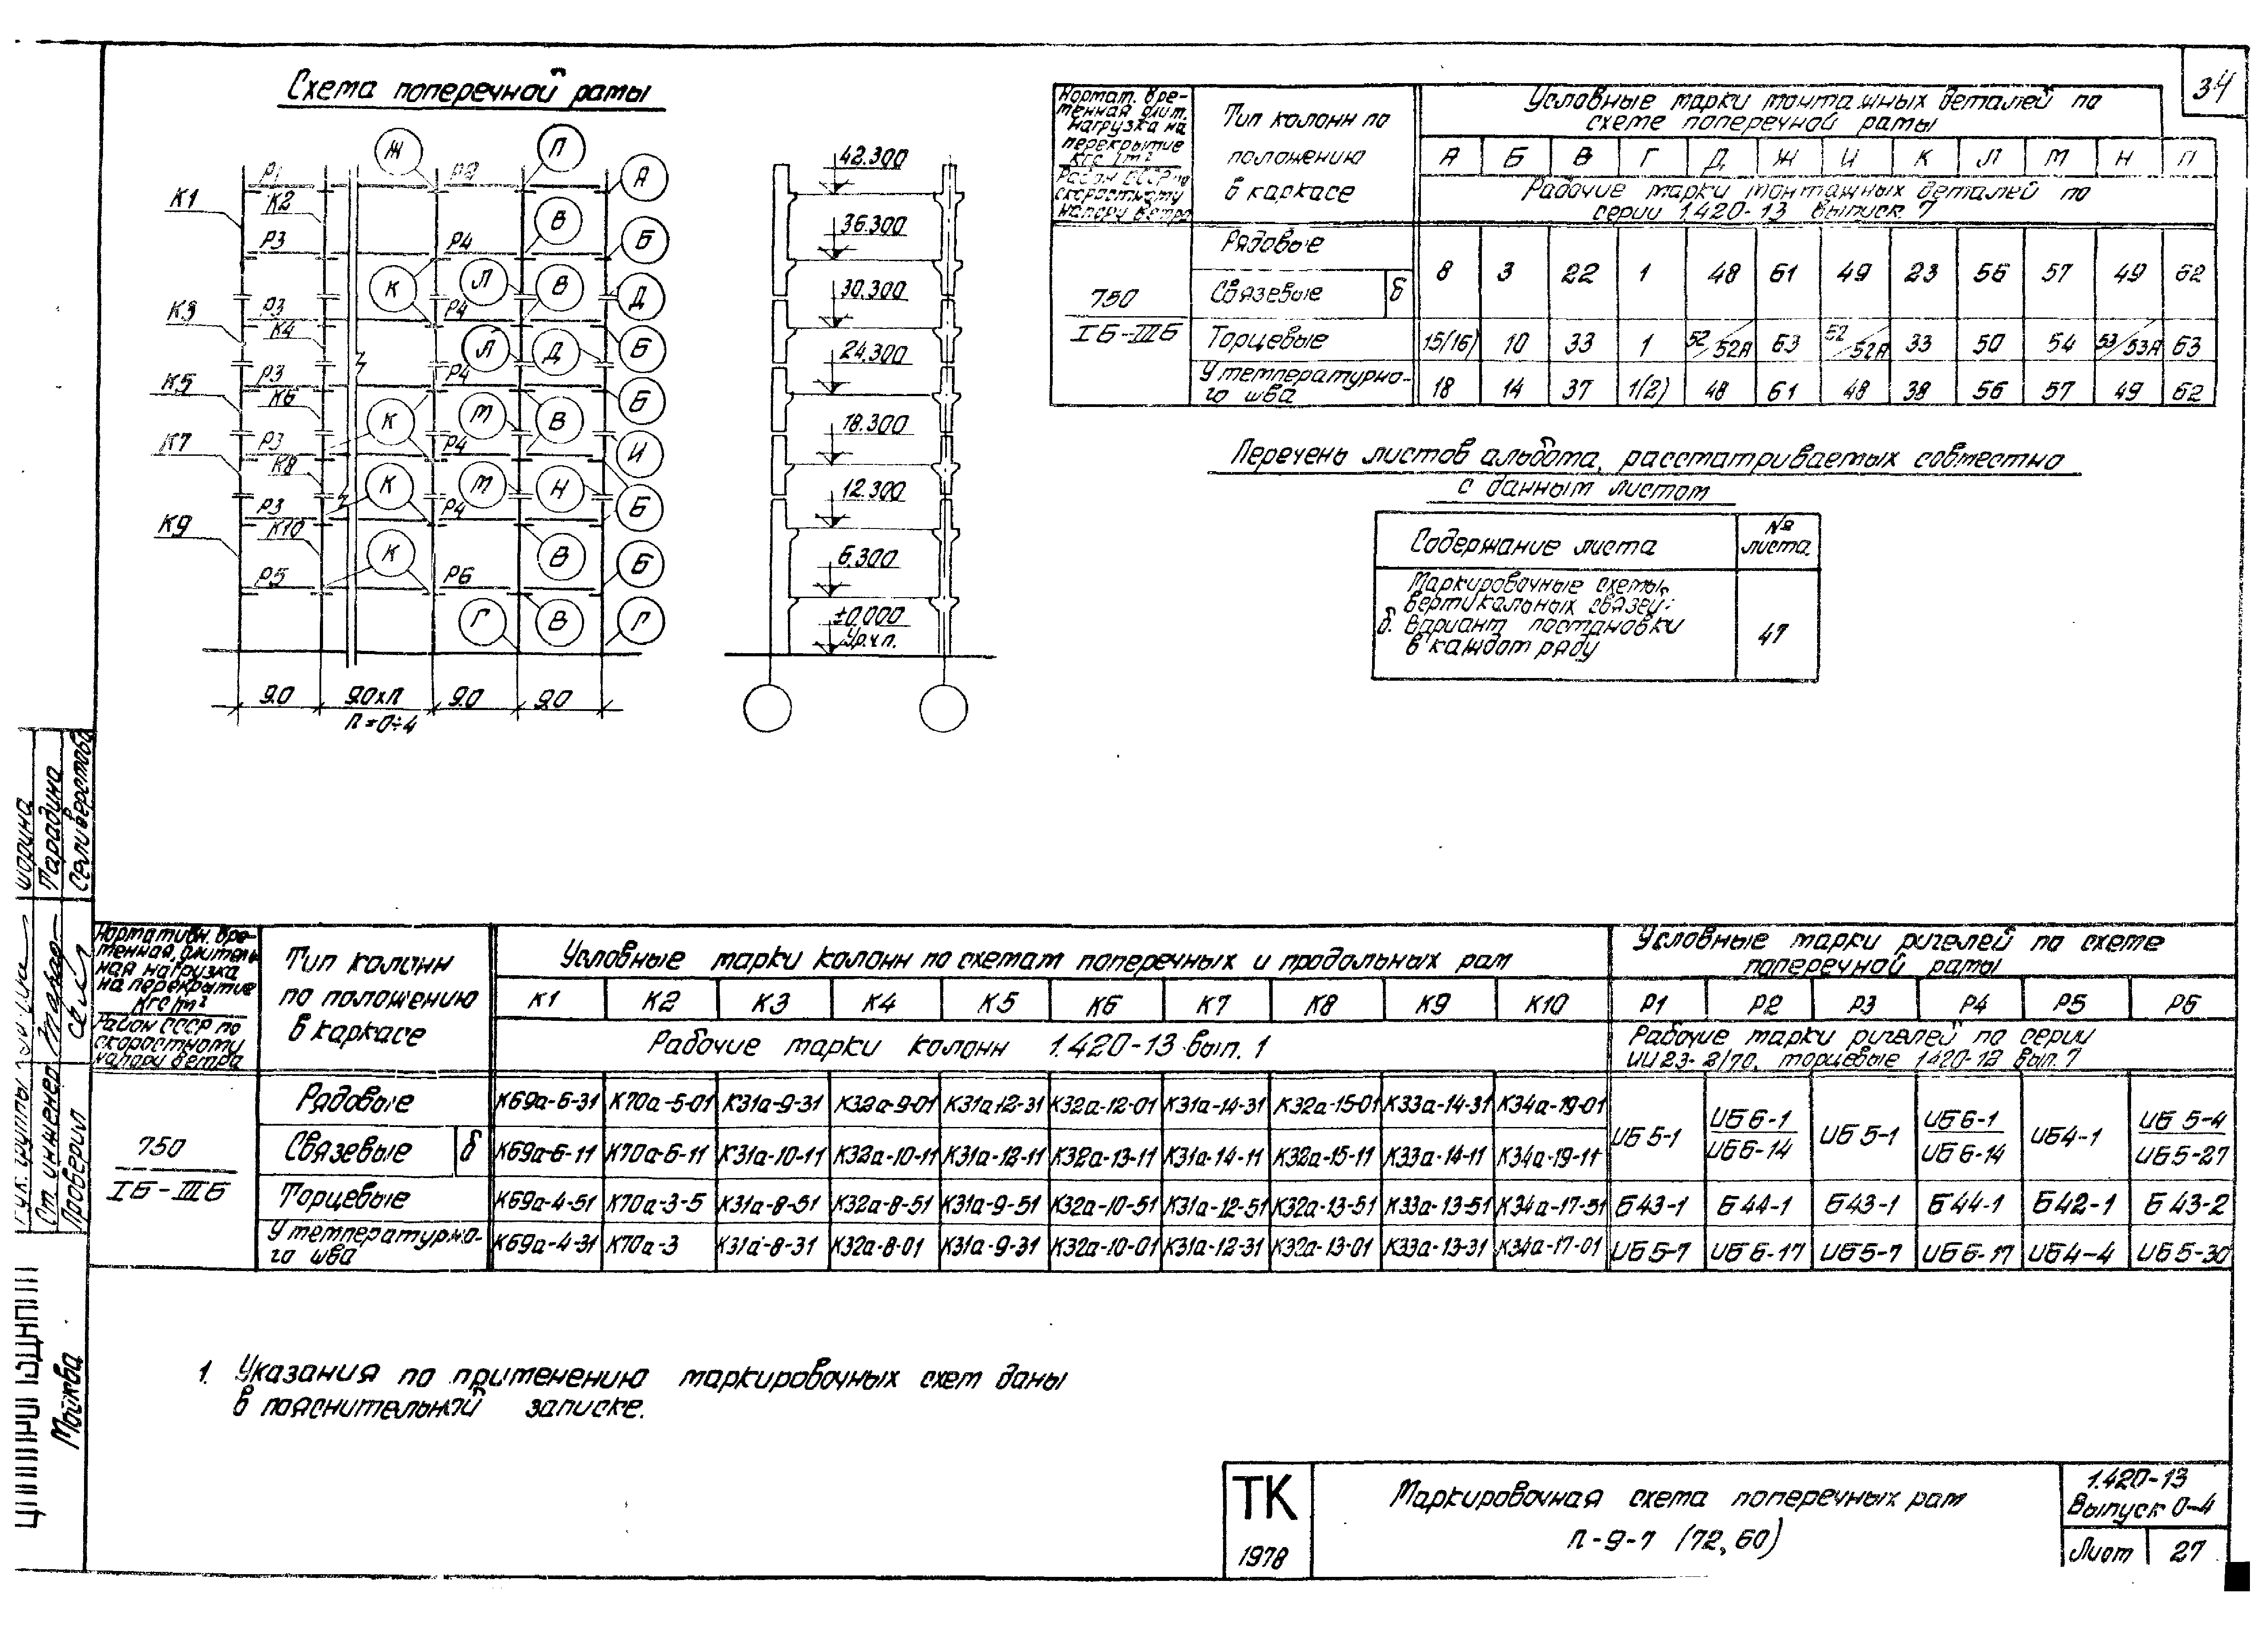 34
Схема поперечной рамы
Ж П А
Р1 Р2
К1 К2
В Б
Р3 Р4
К Л В Д
К3 Р3 Р4
К4
Л Д Б
Р3 Р4
К5 К6
К М В Б
К7 Р3 Р4 И
К8
К М Н Б
Р3 Р4
К9 К10
К В Б
Р5 Р6
Г В Г
9.0 9.0хп 9.0 9.0
п=0÷4
42.300
36.300
30.300
24.300
18.300
12.300
6.300
±0.000
Ур.ч.п.
Нормат. вре-
менная длит.
нагрузка на
перекрытие
кгс/м²
Район СССР по
скоростному
напору ветра
Тип колонн по
положению
в каркасе
Условные марки монтажных деталей по
схеме поперечной рамы
А Б В Г Д Ж И К Л М Н П
Рабочие марки монтажных деталей по
серии 1.420-13 выпуск 7
750
IБ-IIIБ
Рядовые
Связевые б
8 3 22 1 48 61 49 23 56 57 49 62
Торцевые 15/(16) 10 33 1 52/52А 63 52/52А 33 50 54 53/53А 63
У температурно-
го шва 18 14 37 1(2) 48 61 48 38 56 57 49 62
Перечень листов альбома, рассматриваемых совместно
с данным листом
Содержание листа № листа.
Маркировочные схемы
вертикальных связей:
б. вариант постановки
в каждом ряду
47
Нормативн. вре-
менная, длитель-
ная нагрузка
на перекрытие
кгс/м²
Район СССР по
скоростному
напору ветра
Тип колонн
по положению
в каркасе
Условные марки колонн по схемам поперечных и продольных рам
Условные марки ригелей по схеме
поперечной рамы
К1 К2 К3 К4 К5 К6 К7 К8 К9 К10 Р1 Р2 Р3 Р4 Р5 Р6
Рабочие марки колонн 1.420-13 вып. 1
Рабочие марки ригелей по серии
ИИ23-2/70, торцевые 1.420-12 вып. 7
750
IБ-IIIБ
Рядовые К69а-6-31 К70а-5-01 К31а-9-31 К32а-9-01 К31а-12-31 К32а-12-01 К31а-14-31 К32а-15-01 К33а-14-31 К34а-19-01
Связевые б К69а-6-11 К70а-6-11 К31а-10-11 К32а-10-11 К31а-12-11 К32а-13-11 К31а-14-11 К32а-15-11 К33а-14-11 К34а-19-11
ИБ5-1 ИБ6-1/ИБ6-14 ИБ5-1 ИБ6-1/ИБ6-14 ИБ4-1 ИБ5-4/ИБ5-27
Торцевые К69а-4-51 К70а-3-5 К31а-8-51 К32а-8-51 К31а-9-51 К32а-10-51 К31а-12-51 К32а-13-51 К33а-13-51 К34а-17-51 Б43-1 Б44-1 Б43-1 Б44-1 Б42-1 Б43-2
У температурно-
го шва К69а-4-31 К70а-3 К31а-8-31 К32а-8-01 К31а-9-31 К32а-10-01 К31а-12-31 К32а-13-01 К33а-13-31 К34а-17-01 ИБ5-7 ИБ6-17 ИБ5-7 ИБ6-17 ИБ4-4 ИБ5-30
1. Указания по применению маркировочных схем даны
в пояснительной записке.
Рук. группы Шорина
Ст. инженер Парадина
Проверил Селиверстова
Москва
ТК
1978
Маркировочная схема поперечных рам
п-9-7 (72,60)
1.420-13
Выпуск 0-4
Лист 27